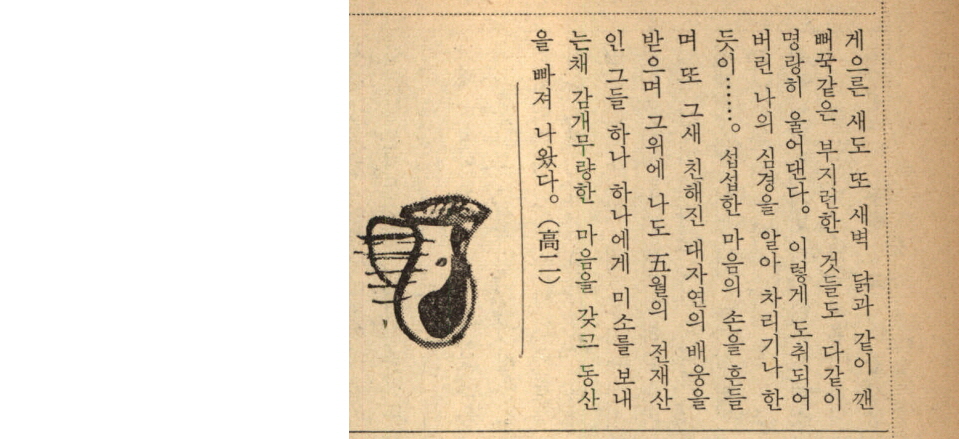 게으른 새도 또 새벽 닭과 같이 깬
뻐꾹같은 부지런한 것들도 다같이
명랑히 울어댄다。 이렇게 도취되어
버린 나의 심경을 알아 차리기나 한
듯이……。 섭섭한 마음의 손을 흔들
며 또 그새 친해진 대자연의 배웅을
받으며 그위에 나도 五월의 전재산
인 그들 하나 하나에게 미소를 보내
는채 감개무량한 마음을 갖고 동산
을 빠져 나왔다。(高二)